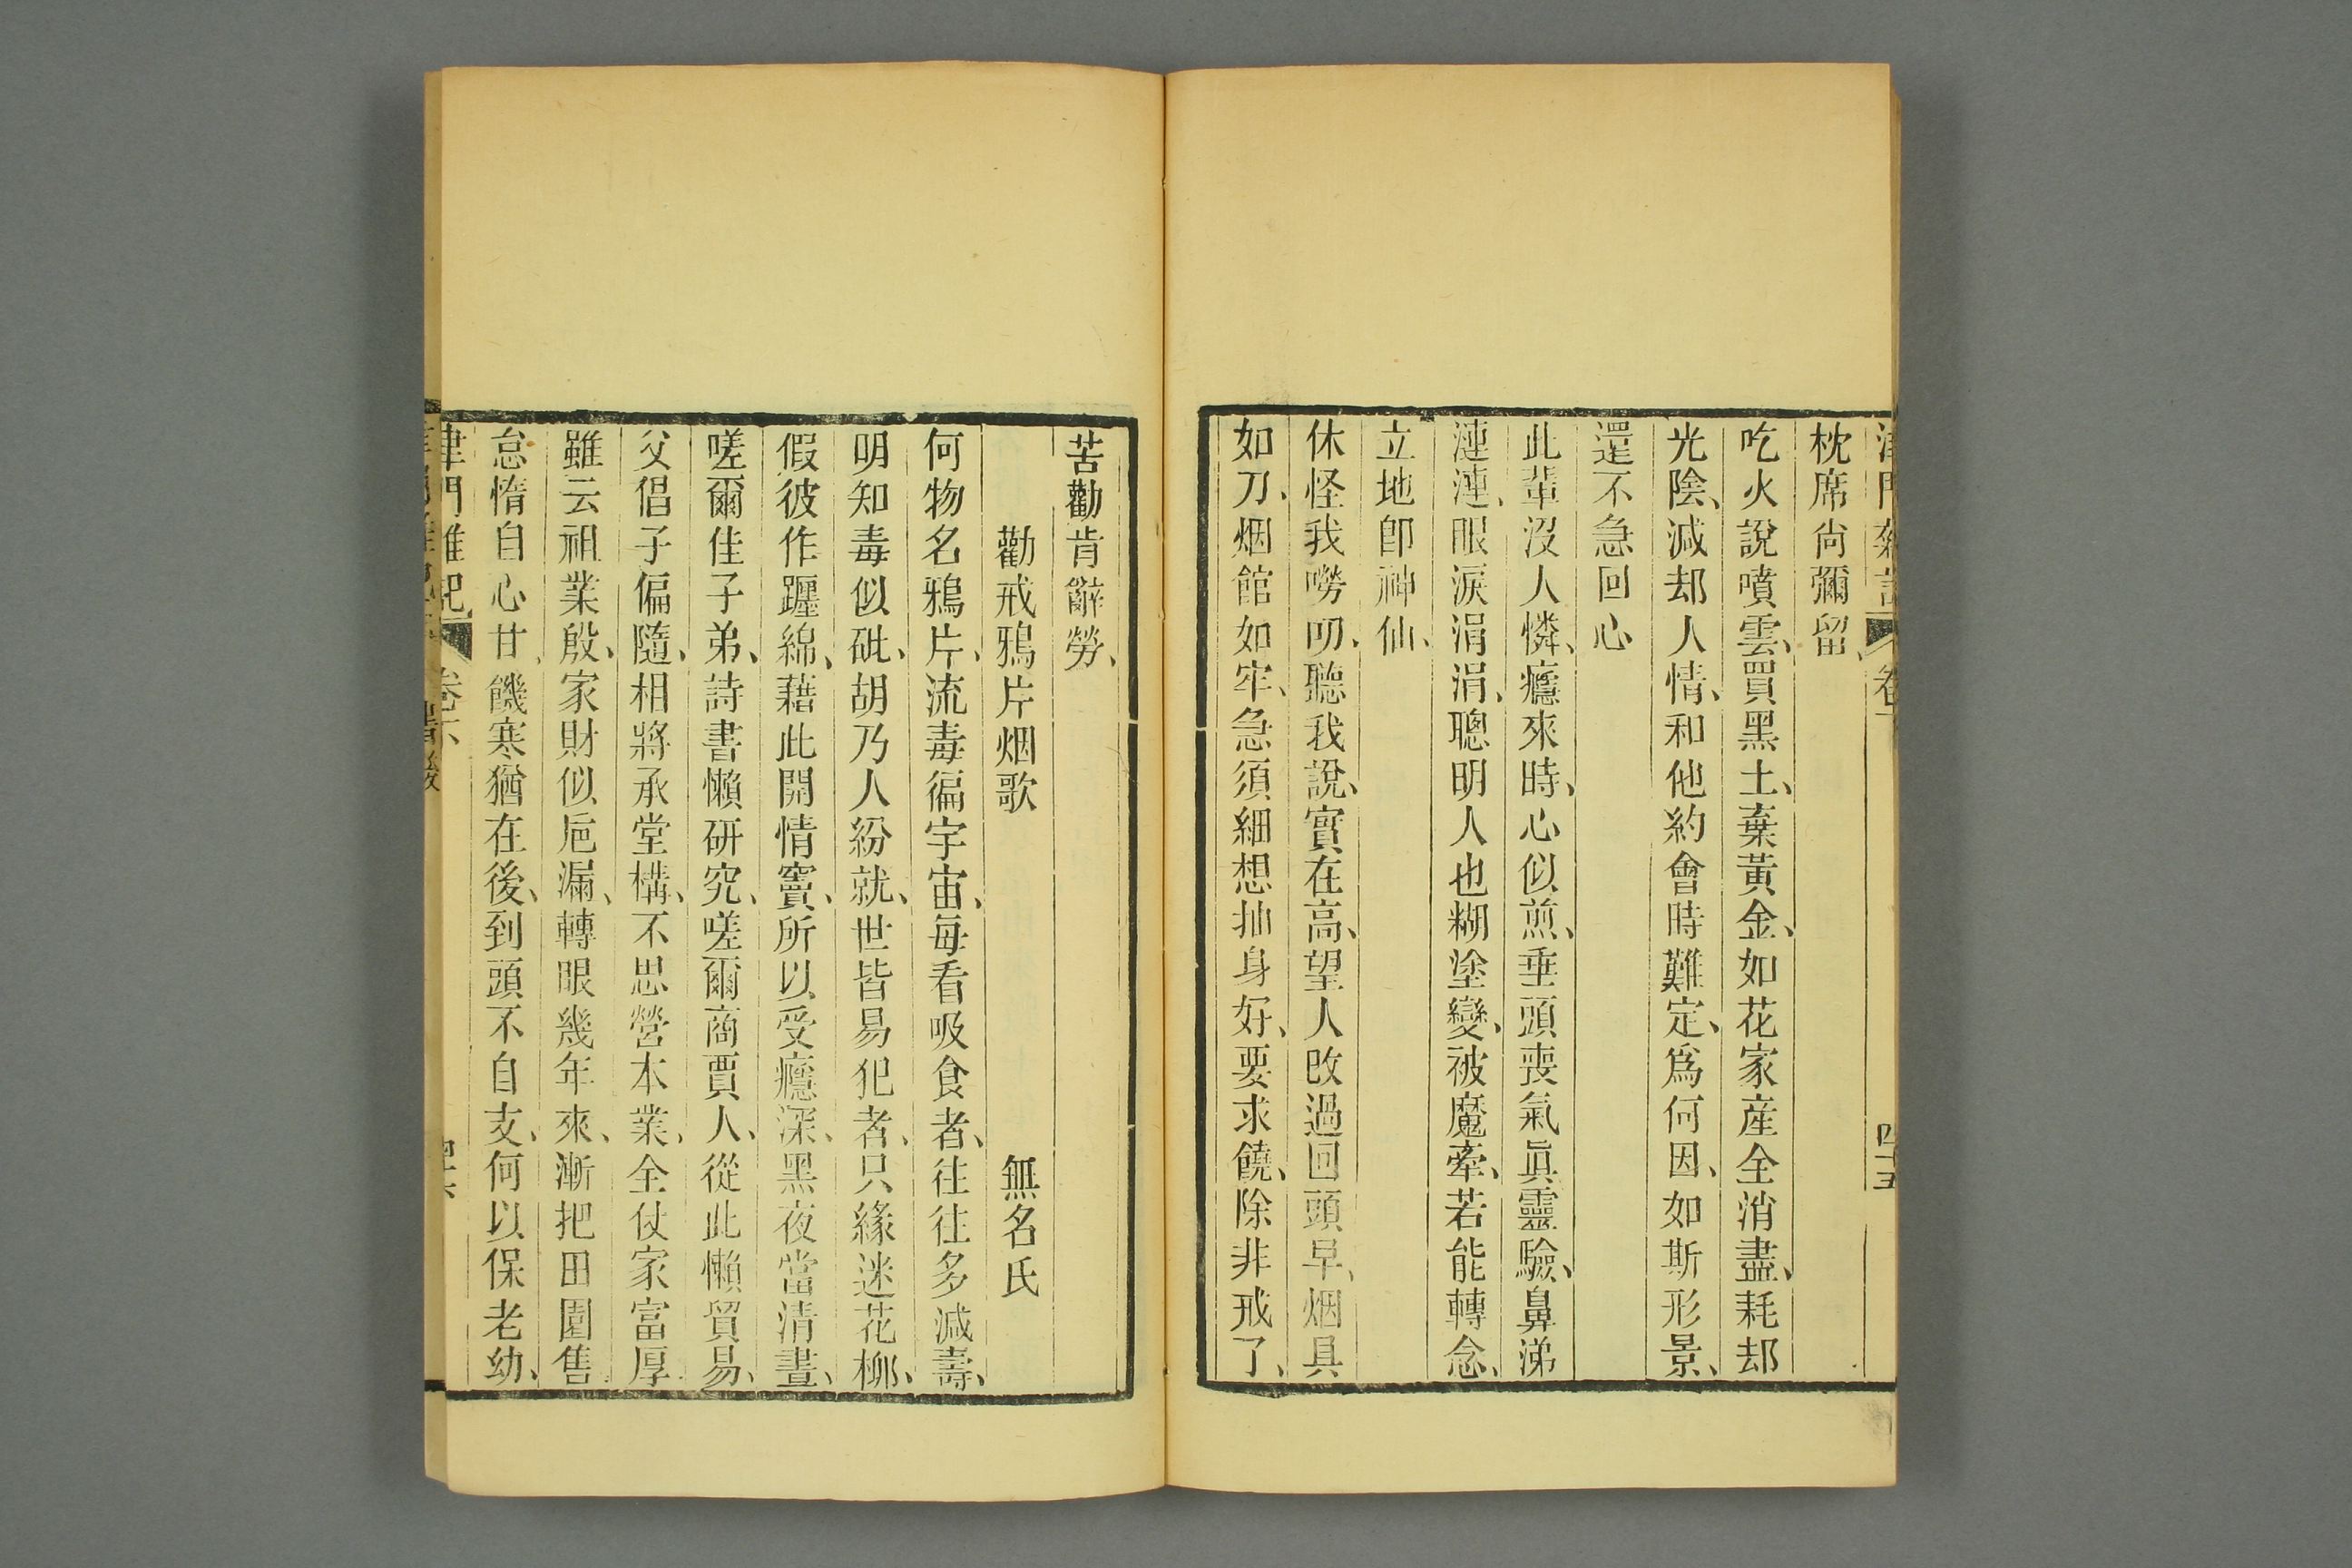 津門雜記 卷下 四十五
枕席尙彌留、
吃火說噴雲、買黑土、棄黃金、如花家産全消盡、耗却
光陰、減却人情、和他約會時難定、爲何因、如斯形景、
還不急回心
此輩沒人憐、癮來時、心似煎、垂頭喪氣眞靈驗、鼻涕
漣漣、眼淚涓涓、聰明人也糊塗變、被魔牽、若能轉念、
立地卽神仙、
休怪我嘮叨、聽我說、實在高、望人改過回頭早、烟具
如刀、烟館如牢、急須細想抽身好、要求饒、除非戒了、
苦勸肯辭勞、
勸戒鴉片烟歌 無名氏
何物名鴉片、流毒徧宇宙、每看吸食者、往往多減壽、
明知毒似砒、胡乃人紛就、世皆易犯者、只緣迷花柳、
假彼作躔綿、藉此開情竇、所以受癮深、黑夜當清晝、
嗟爾佳子弟、詩書懶研究、嗟爾商賈人、從此懶貿易、
父倡子偏隨、相將承堂構、不思營本業、全仗家富厚
雖云祖業殷、家財似巵漏、轉眼幾年來、漸把田園售
怠惰自心甘、饑寒猶在後、到頭不自支、何以保老幼、
津門雜記 卷下 四十六